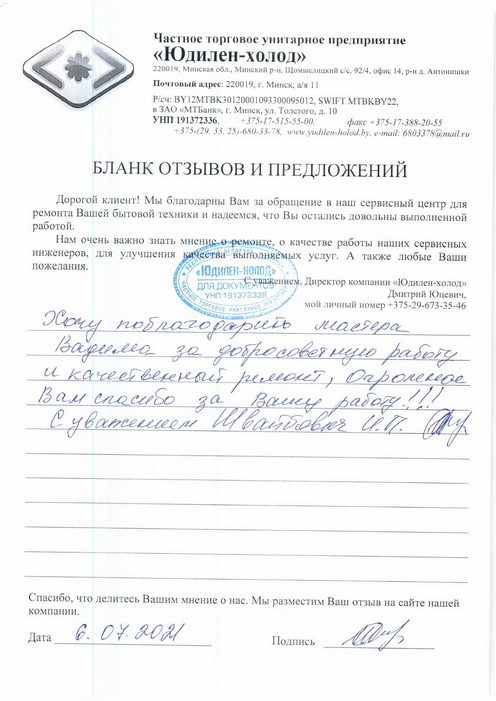 Частное торговое унитарное предприятие
«Юдилен-холод»
220019, Минская обл., Минский р-н, Щомыслицкий с/с, 92/4, офис 14, р-н д. Антонишки
Почтовый адрес: 220019, г. Минск, а/я 11
Р/сч: BY12MTBK30120001093300095012, SWIFT MTBKBY22,
в ЗАО «МТБанк», г. Минск, ул. Толстого, д. 10
УНП 191372336, +375-17-515-55-00, факс +375-17-388-20-55
+375-(29, 33, 25)-680-33-78, www.yudilen-holod.by, e-mail: 6803378@mail.ru
БЛАНК ОТЗЫВОВ И ПРЕДЛОЖЕНИЙ
Дорогой клиент! Мы благодарны Вам за обращение в наш сервисный центр для
ремонта Вашей бытовой техники и надеемся, что Вы остались довольны выполненной
работой.
Нам очень важно знать мнение о ремонте, о качестве работы наших сервисных
инженеров, для улучшения качества выполняемых услуг. А также любые Ваши
пожелания.
«ЮДИЛЕН-ХОЛОД»
ДЛЯ ДОКУМЕНТОВ
УНП 191372336
С уважением, Директор компании «Юдилен-холод»
Дмитрий Юцевич,
мой личный номер +375-29-673-35-46
Хочу поблагодарить мастера
Вадима за добросоветную работу
и качественный ремонт, Огромное
Вам спасибо за Вашу работу!!!
С уважением Швайбович И.П.
Спасибо, что делитесь Вашим мнением о нас. Мы разместим Ваш отзыв на сайте нашей
компании.
Дата 6.07.2021 Подпись